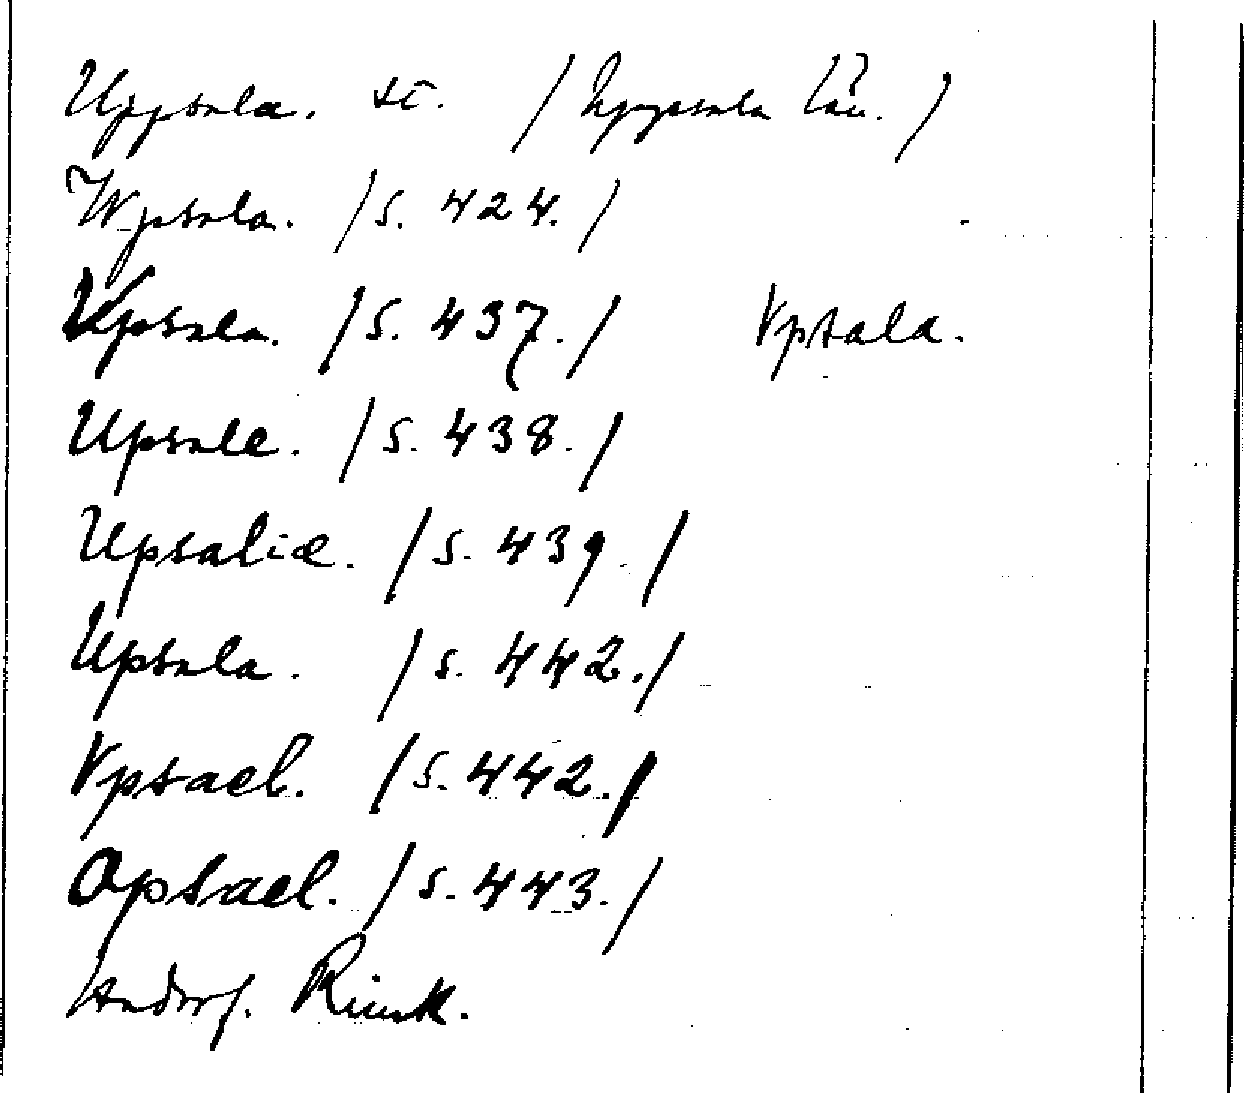 Uppsala. st. /Uppsala län./
Wpsala. /s. 424./
Vpsala. /s. 437./ Vpsala.
Upsale. /s. 438./
Upsaliæ. /s. 439./
Upsala. /s. 442./
Vpsael. /s. 442./
Opsael. /s. 443./